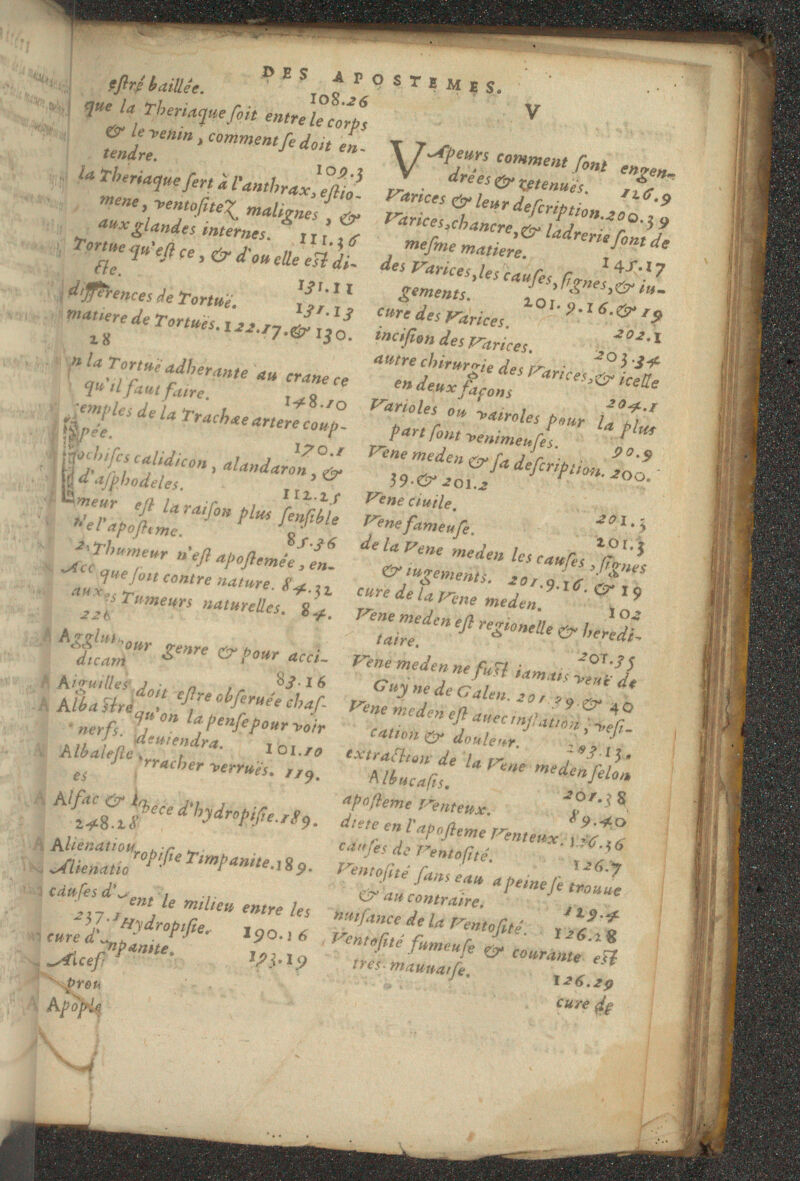 DES APOSTEMES.
estre baillée. 108.26
que la Theriaque soit entre le corps
& le venin, comment se doit en-
tendre. 109.3
la Theriaque sert à l'anthrax, estio-
mene, ventositez malignes, &
aux glandes internes. 111.36
Tortue qu'est ce, & d'ou elle est di-
cte. 131.11
differences de Tortuë. 131.13
matiere de Tortuës. 122.17.& 130.
18
la Tortuë adherante au crane ce
qu'il faut faire. 148.10
emples de la Trachæe artere coup-
pée. 170.1
ochisces calidicon, alandaron, &
d'asphodeles. 112.25
meur est la raison plus sensible
l'aposteme. 85.36
Thumeur n'est apostemée, en-
que soit contre nature. 84.32
Tumeurs naturelles. 84.
226
our genre & pour acci-
83.16
doit estre obseruée chas-
qu'on la pense pour voir
deuiendra. 101.10
rracher verruës. 119.
ece d'hydropisie. 189.
ropisie Timpanite. 189.
ent le milieu entre les
Hydropisie. 190.16
npanite. 193.19
Agglut
dicam
Aiguilles
Albastre
nerfs.
Albaleste
es
Alfac &
248.28
Alienation
Alienatio
causes d'
237.
cure d'
Alcef
prou
Apople
V
VApeurs comment sont engen-
drées & retenuës. 126.9
Varices & leur description. 200.39
Varices, chancre, & ladrerie sont de
mesme matiere. 145.17
des Varices, les causes, signes, & iu-
gements. 201.9.16.& 19
cure des Varices. 202.1
incision des Varices. 203.34
autre chirurgie des Varices, & icelle
en deux façons 204.1
Varioles ou vairoles pour la plus
part sont venimeuses. 90.9
Vene meden & sa description. 200.
39.& 201.2
Vene ciuile. 201.3
Vene fameuse. 201.3
de la Vene meden les causes, signes
& iugements. 201.9.16. & 19
cure de la Vene meden. 102
Vene meden est regionelle & heredi-
taire. 201.35
Vene meden ne fust iamais veuë de
Guy ne de Galen. 201.39.& 40
Vene meden est auec inflation, vesi-
cation & douleur. 203.13.
extraction de la Vene meden selon
Albucasis. 201.38
aposteme Venteux. 89.40
diete en l'aposteme Venteux. 126.36
causes de Ventosité. 126.7
Ventosité sans eau a peine se trouue
& au contraire. 119.4
nuisance de la Ventosité. 126.28
Ventosité fumeuse & courante est
tres-mauuaise. 126.29
cure de